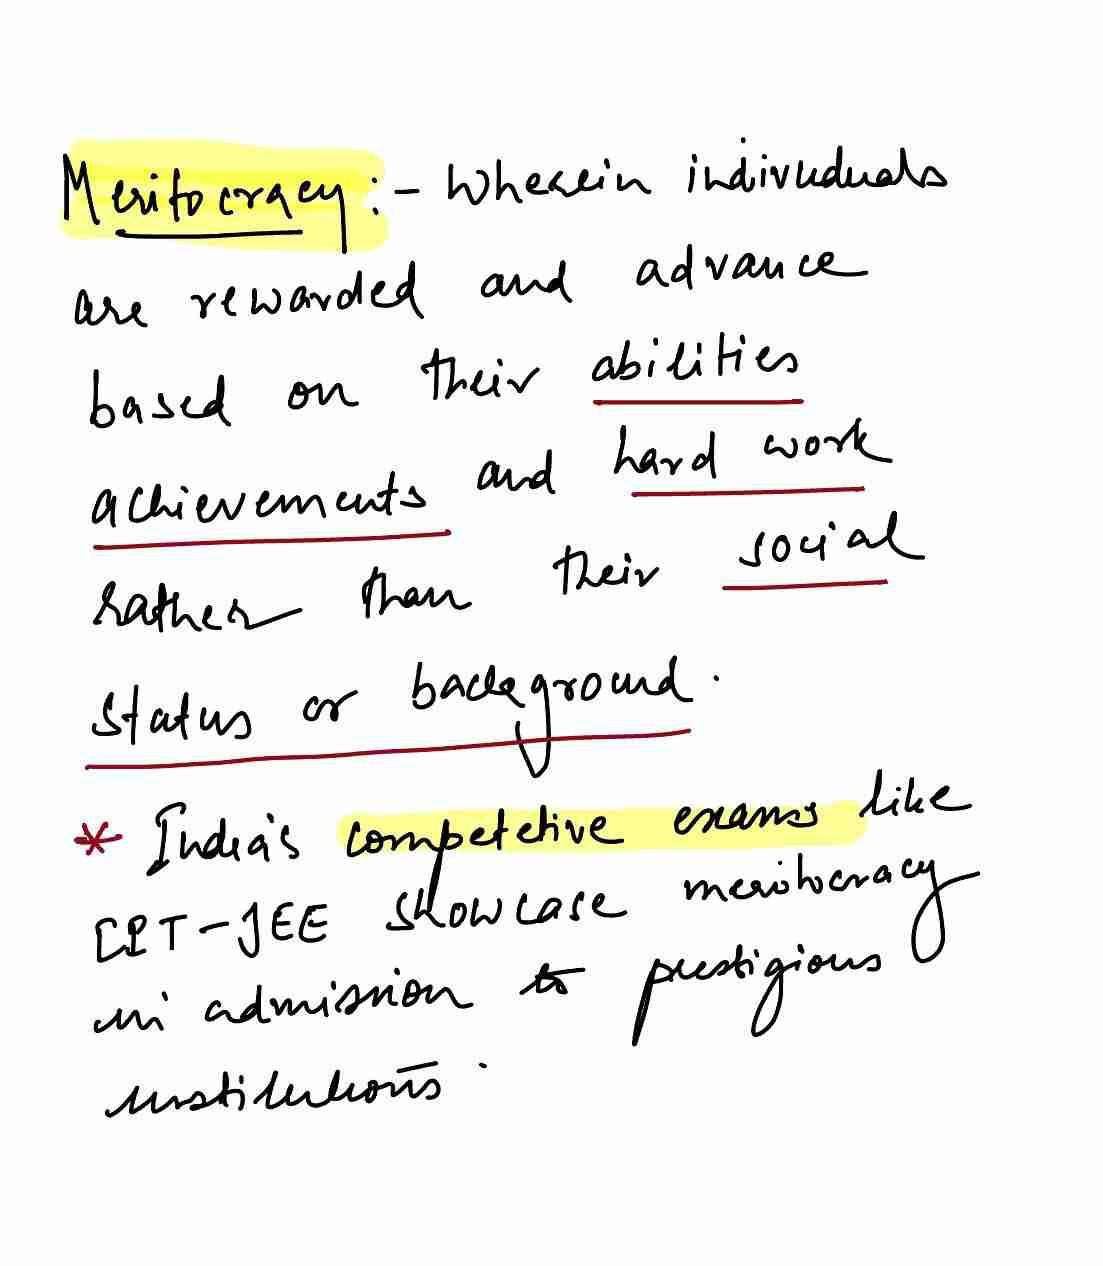 Meritocracy:- Wherein individuals
are rewarded and advance
based on their abilities
achievements and hard work
rather than their social
status or background.
* India's competetive exams like
IIT-JEE showcase meritocracy
in admission to prestigious
institutions.